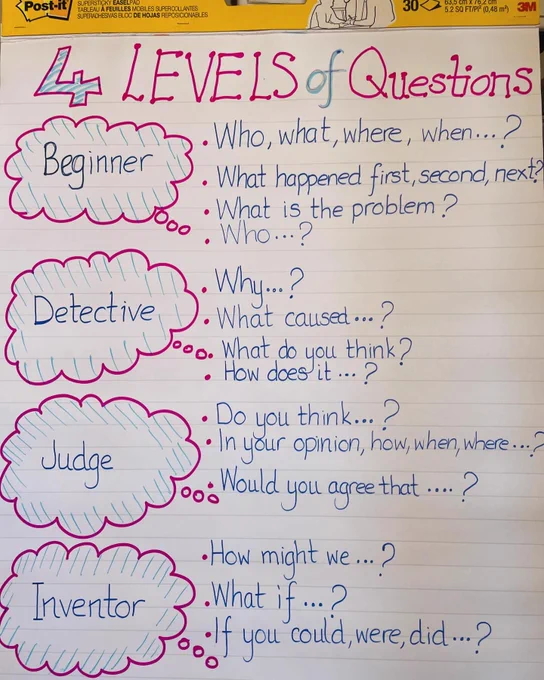 Post-it
SUPERSTICKY EASELPAD
TABLEAU À FEUILLES MOBILES SUPERCOLLANTES
SUPERADHESIVAS BLOC DE HOJAS REPOSICIONABLES
30
63,5 cm x 76,2 cm
5.2 SQ FT/PI² (0,48 m²)
3M
4 LEVELS of Questions
Beginner
• Who, what, where, when...?
• What happened first, second, next?
• What is the problem?
• Who...?
Detective
• Why...?
• What caused...?
• What do you think?
• How does it ...?
Judge
• Do you think...?
• In your opinion, how, when, where...?
• Would you agree that ....?
Inventor
• How might we ...?
• What if ...?
• If you could, were, did ...?